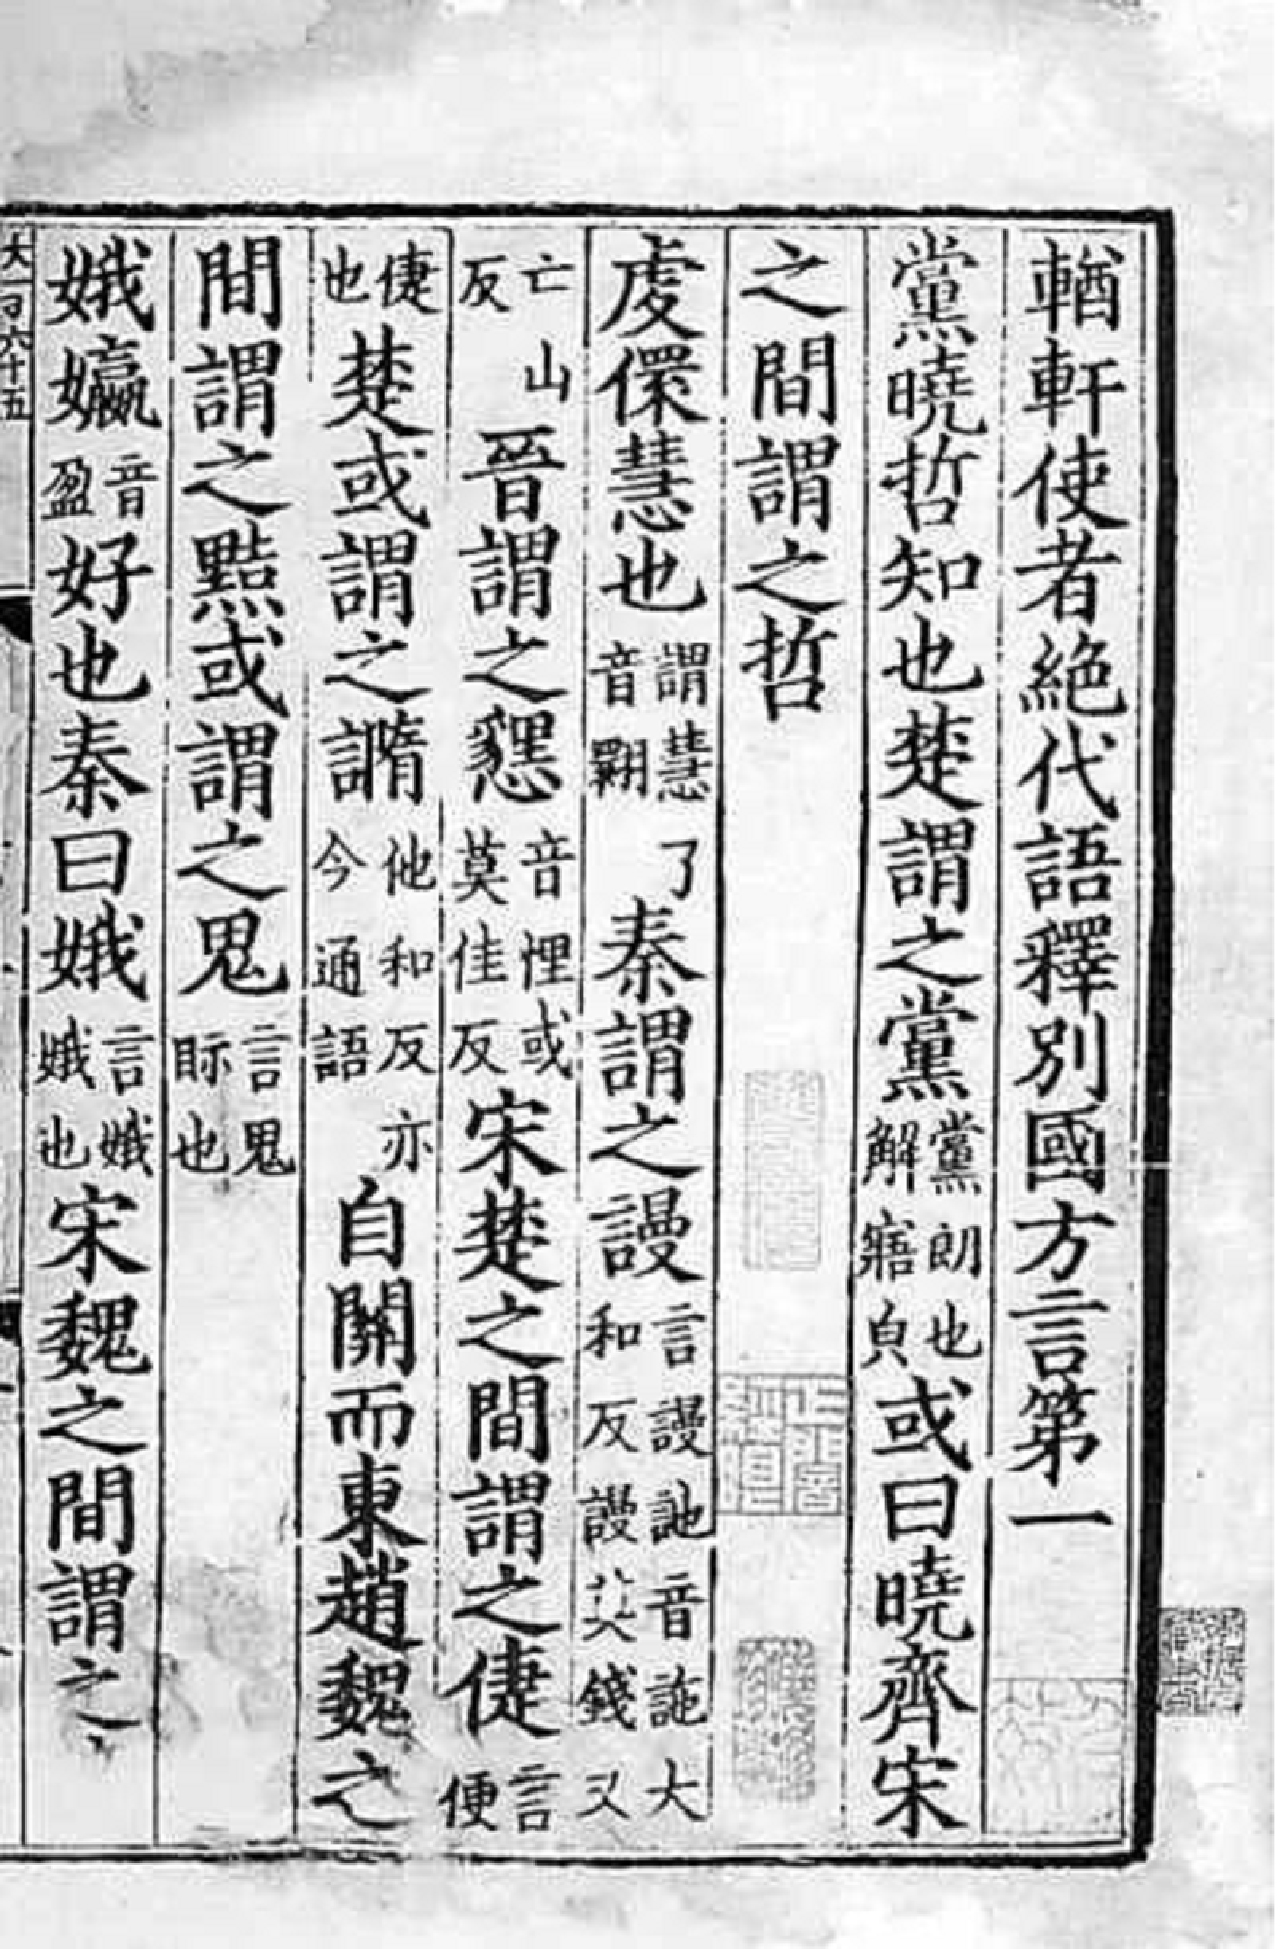 輶軒使者絶代語釋別國方言第一
黨曉哲知也楚謂之黨黨朗也解寤皃或曰曉齊宋
之間謂之哲
虔儇慧也謂慧了音翾秦謂之謾言謾詑音詑大和反謾莫錢又
亡山反晉謂之㦟音悝或莫佳反宋楚之間謂之倢言便
倢也楚或謂之䜏他和反亦今通語自關而東趙魏之
間謂之黠或謂之鬼言鬼眎也
娥㜲音盈好也秦曰娥言娥娥也宋魏之間謂之
大一百六十五